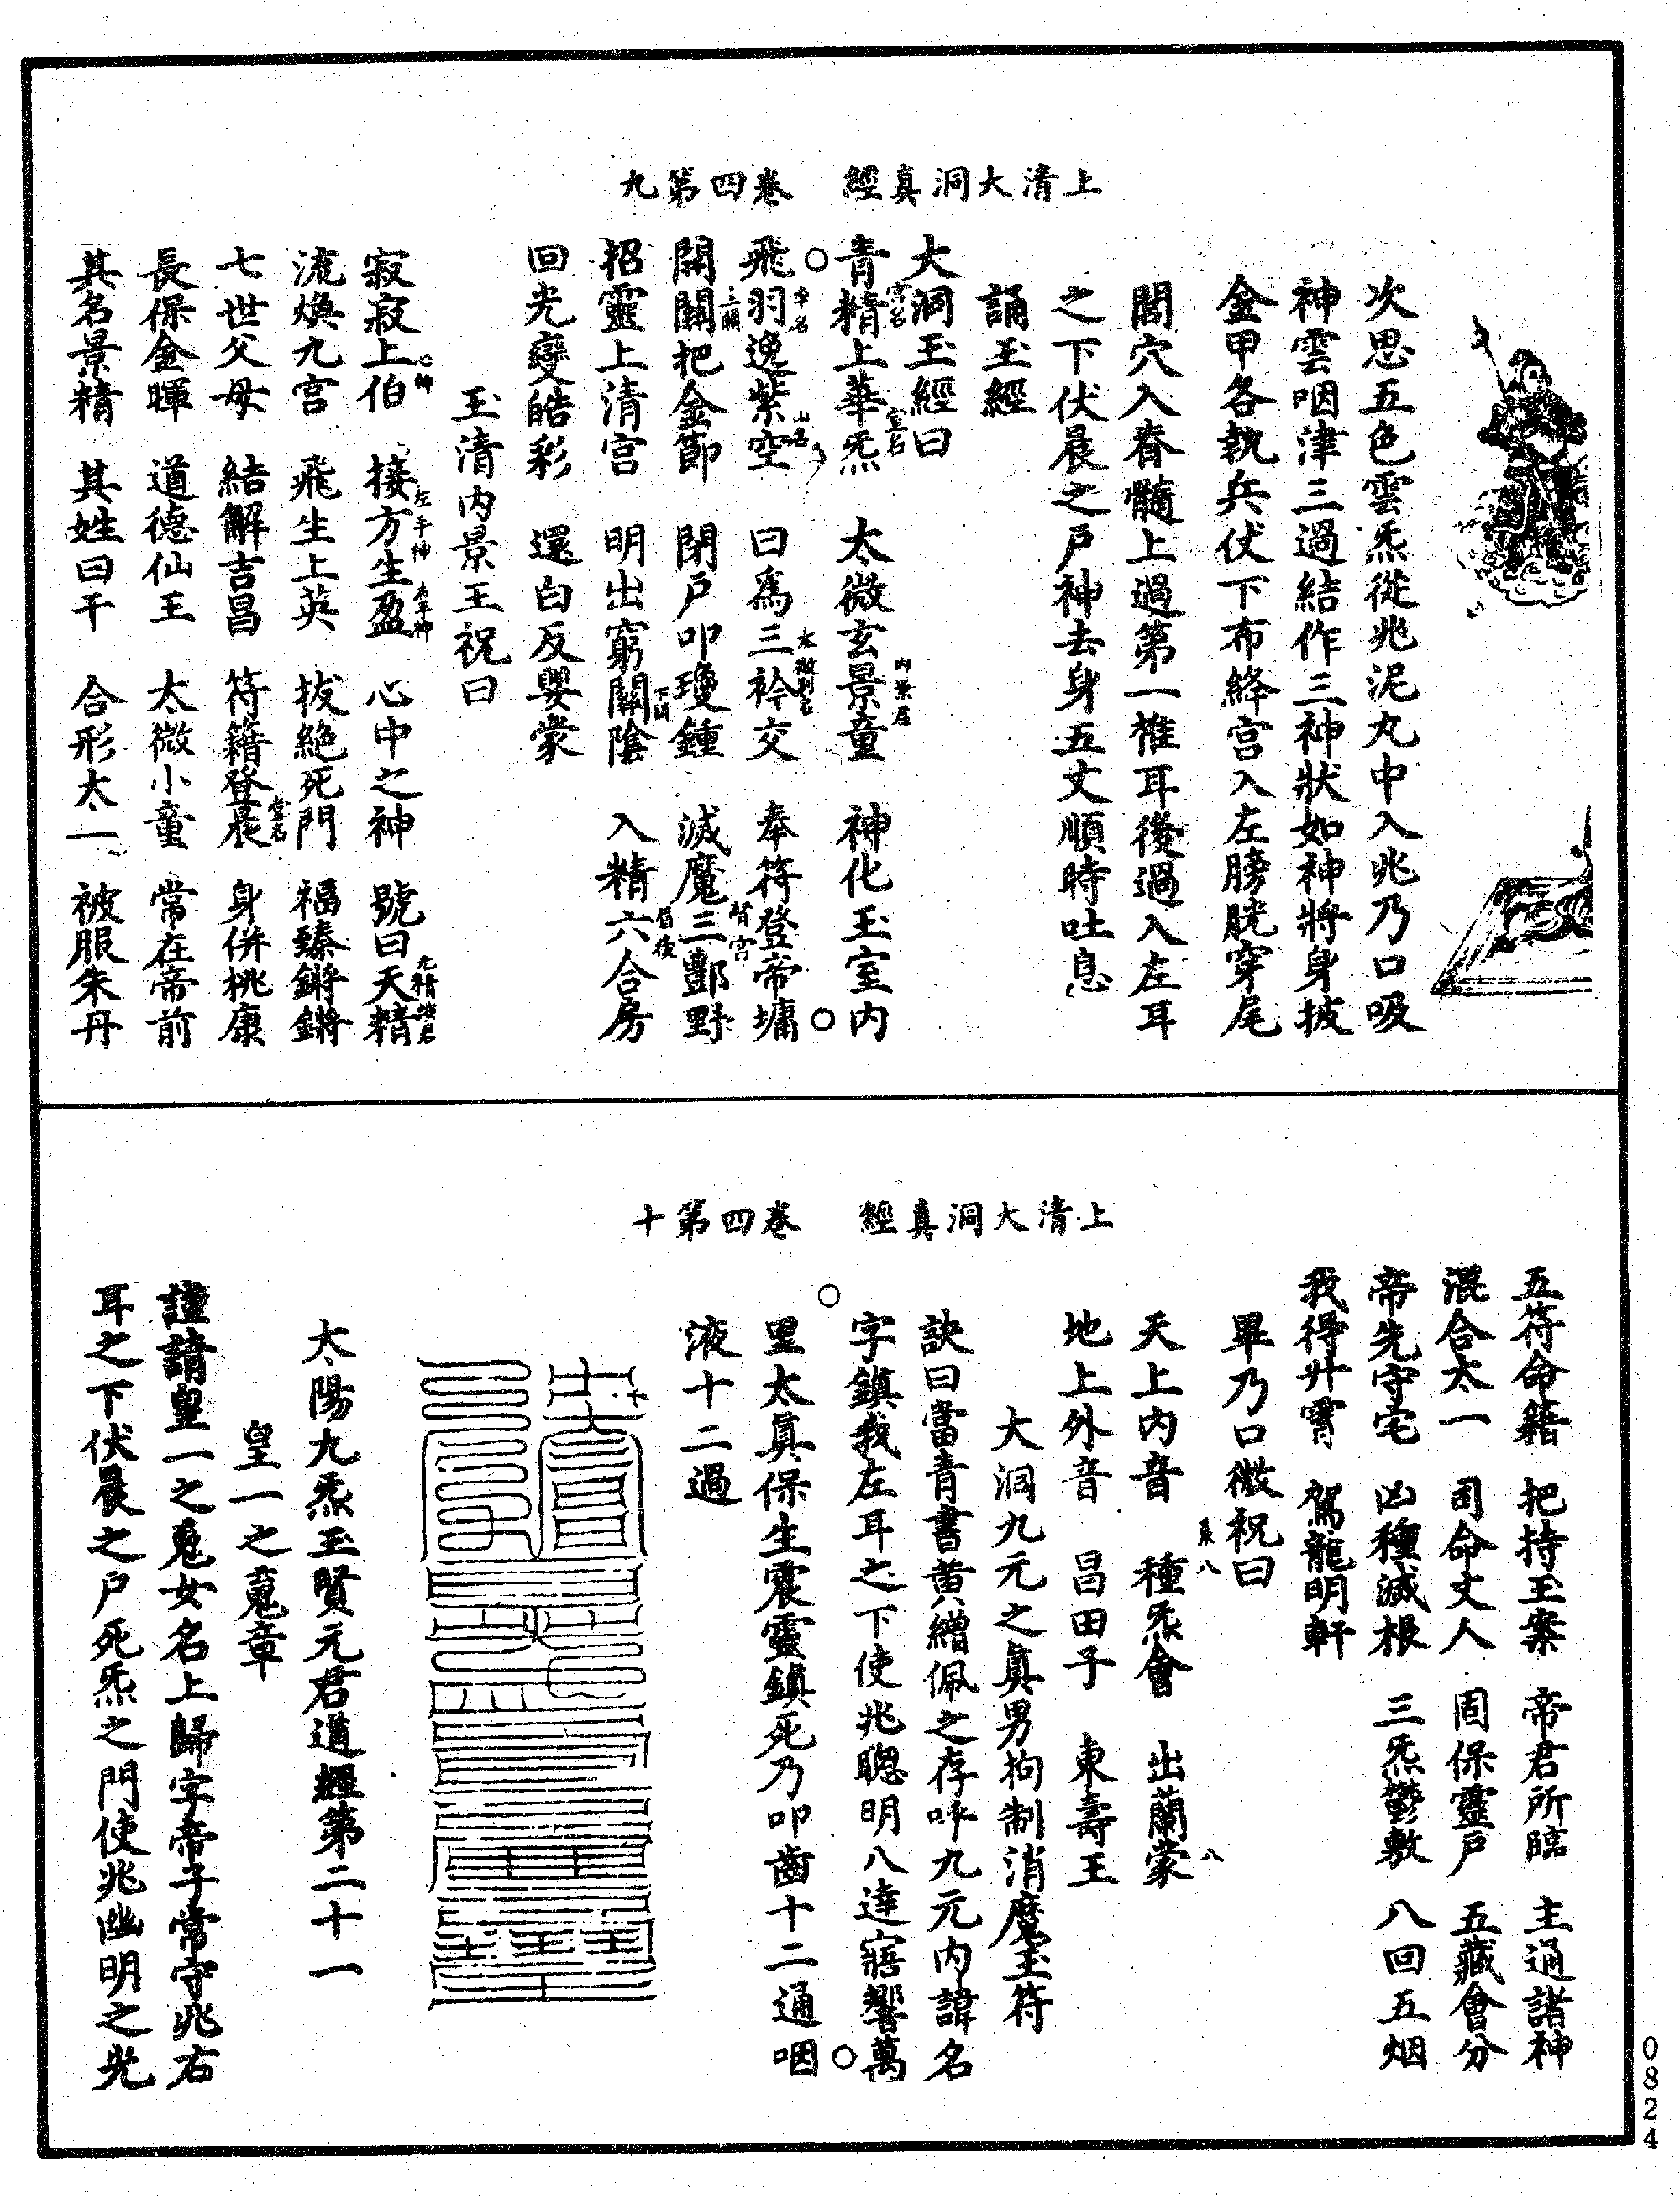 上清大洞真經　卷四第九
次思五色雲炁從兆泥丸中入兆乃口吸
神雲咽津三過結作三神狀如神將身披
金甲各執兵仗下布絳宮入左膀胱穿尾
閭穴入脊髓上過第一椎耳後過入左耳
之下伏晨之戶神去身五丈順時吐息
誦玉經
大洞玉經曰
青精上華炁　太微玄景童　神化玉室內
飛羽逸紫空　曰為三衿交　奉符登帝墉
開關把金節　閉戶叩瓊鍾　滅魔三酆野
招靈上清宮　明出窮關陰　入精六合房
回光變皓彩　還白反嬰蒙
玉清內景王祝曰
寂寂上伯心神　接方左手神生盈右手神　心中之神　號曰天精
流煥九宮　飛生上英　拔絕死門　福臻鏘鏘
七世父母　結解吉昌　符籍登晨堂名　身併桃康
長保金暉　道德仙王　太微小童　常在帝前
其名景精　其姓曰干　合形太一　被服朱丹
上清大洞真經　卷四第十
五符命籍　把持玉案　帝君所臨　主通諸神
混合太一　司命丈人　固保靈戶　五藏會分
帝先守宅　凶種滅根　三炁鬱敷　八回五烟
我得升霄　駕龍明軒
畢乃口微祝曰
天上內音　種炁會　出蘭蒙
地上外音　昌田子　東壽王
大洞九元之真男拘制消魔玉符
訣曰當青書黃繒佩之存呼九元內諱名
字鎮我左耳之下使兆聰明八達寤響萬
里太真保生震靈鎮死乃叩齒十二通咽
液十二過
太陽九炁玉賢元君道經第二十一
皇一之魂章
謹請皇一之魂女名上歸字帝子常守兆右
耳之下伏晨之戶死炁之門使兆幽明之光
0824